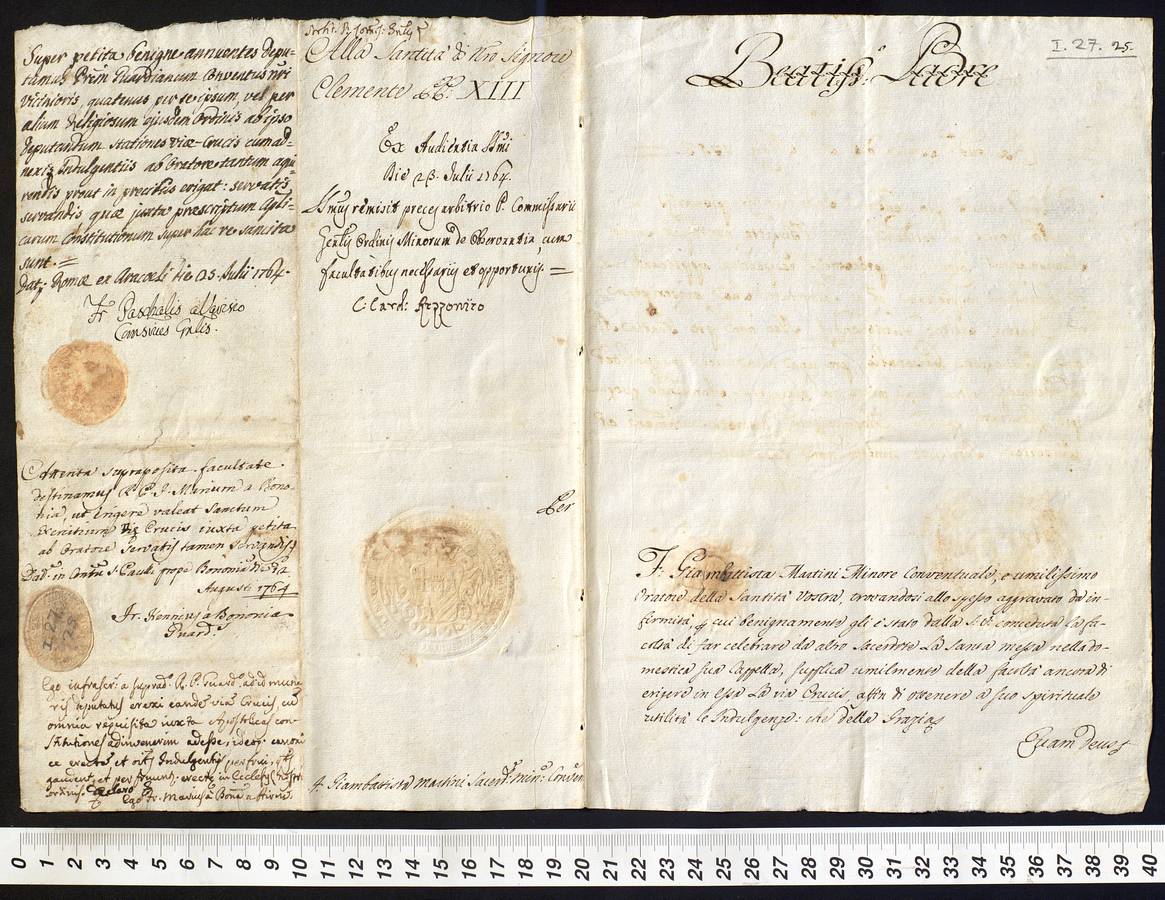 Super petita benigne annuentes depu-
tamus Prem Guardianum Conventus nri
Vicinioris, quatenus per se ipsum, vel per
alium Religiosum ejusdem Ordinis ab ipso
deputandum stationes viæ Crucis cum ad-
nexis Indulgentiis ab Oratore tantum aqui-
rendis prout in precibus erigat: servatis
servandis quæ juxta præscriptum Apli-
carum Constitutionum super hac re sancita
sunt. =
Dat: Romæ ex Aracœli die 25. Julii 1764.
Fr Paschalis a Varisio
Comsrius Gnlis.
Attenta supraposita facultate
destinamus R. P. F. Marium a Bono-
nia, ut erigere valeat Sanctum
Exercitium Viæ Crucis iuxta petita
ab Oratore servatis tamen servandis
Dat. in Conv. S. Pauli prope Bononiam die
Augusti 1764
Fr. Hennius a Bononia
Guard.
I.27.
25
Ego infrascr. a suprad. R. P. Guard. ad id mune-
ris deputatus erexi eandē viam Crucis, cū
omnia requisita iuxta Apostolicas con-
stitutiones adinvenerim adesse; ideoq. canoni-
ce erectā et oīs Indulgentijs perfrui, quis
gaudent, et perfruunt. erectæ in Ecclesijs nostri
ordinis.
Ego Fr. Marius a Bonā
Alla Santità di Nro Signore
Clemente PP. XIII
Ex Audientia SSmi
Die 23. Julii 1764.
SSmus remisit preces arbitrio P. Commissarii
Gnlis Ordinis Minorum de Observantia, cum
facultatibus necessariis et opportunis. =
C. Card: Rezzonico
Per
F. Giambattista Martini Sacerd. Min. Conven
I. 27. 25.
Beatiss. Padre
F. Giambattista Martini Minore Conventuale, e umilissimo
Oratore della Santità Vostra, trovandosi allo spesso aggravato da in-
firmità, p cui benignamente gli è stato dalla S. V. conceduta la fa-
coltà di far celebrare da altro Sacerdote la Santa messa nella do-
mestica sua Cappella, supplica umilmente della facoltà ancora di
erigere in essa la via Crucis, affin di ottenere a suo spirituale
utilità le Indulgenze: che della Grazia
Quam Deus
0 1 2 3 4 5 6 7 8 9 10 11 12 13 14 15 16 17 18 19 20 21 22 23 24 25 26 27 28 29 30 31 32 33 34 35 36 37 38 39 40